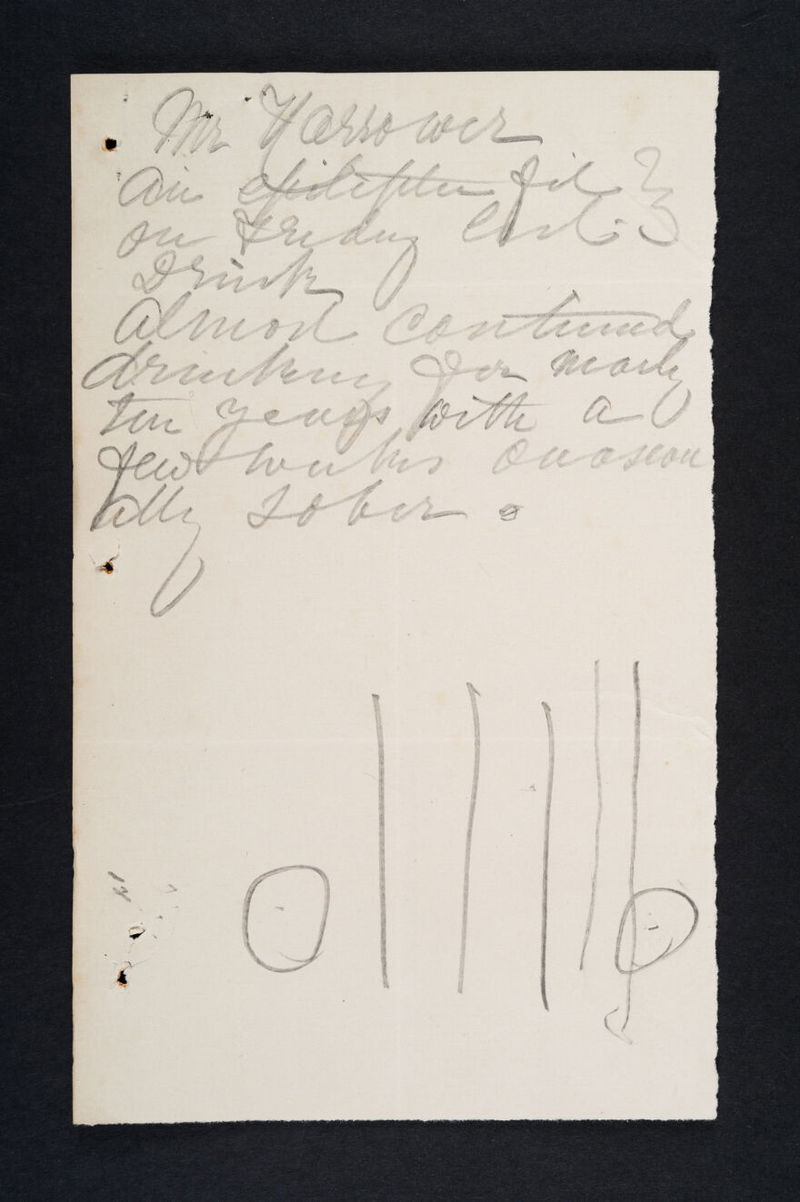 Mr Harrower
an epileptic fit ?
on Friday last
Drink
almost continued
drinking for nearly
ten years with a
few weeks ocasion
ally sober.